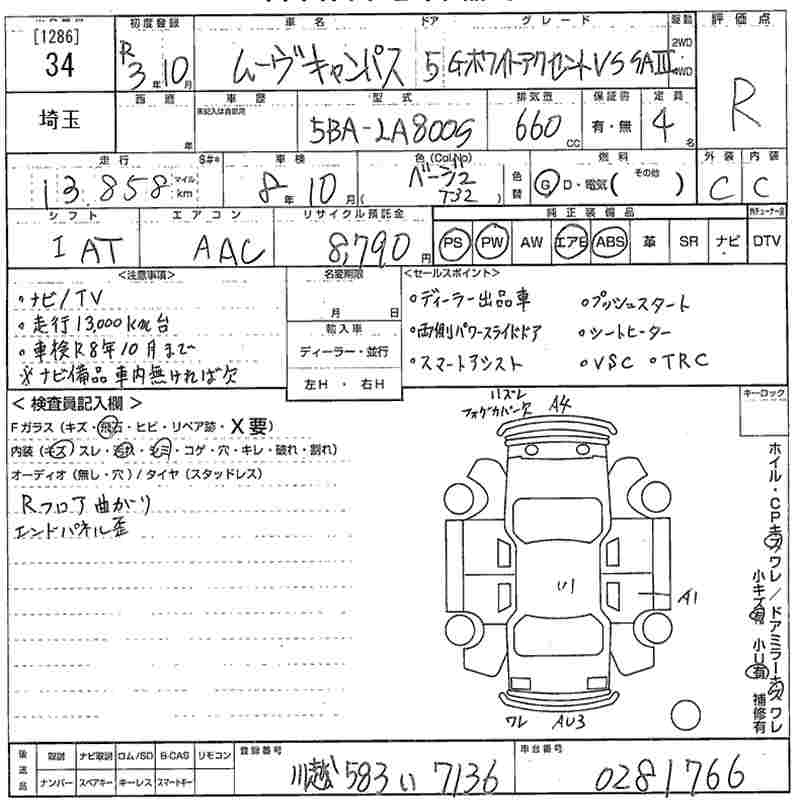 [1286]
34
埼玉
初度登録
R3年10月
車名
ムーヴキャンバス
ドア
5
グレード
GホワイトアクセントVS SAⅢ
駆動
2WD
4WD
評価点
R
西暦
年
車歴
未記入は自家用
型式
5BA-LA800S
排気量
660 CC
保証書
有・無
定員
4名
走行
13,858
マイル
km
S#*
車検
8年10月
色(Col.No)
ベージュ
( T32 )
色替
燃料
G D・電気( その他 )
外装
C
内装
C
シフト
I AT
エアコン
AAC
リサイクル預託金
8,790円
純正装備品
PS PW AW エアB ABS 革 SR ナビ
DTV
<注意事項>
。ナビ/TV
。走行13,000km台
。車検R8年10月まで
※ナビ備品車内無ければ欠
名変期限
月 日
輸入車
ディーラー・並行
左H・右H
<セールスポイント>
。ディーラー出品車 。プッシュスタート
。両側パワースライドドア 。シートヒーター
。スマートアシスト 。VSC 。TRC
<検査員記入欄>
Fガラス(キズ・飛石・ヒビ・リペア跡・X要)
内装(キズ・スレ・汚れ・シミ・コゲ・穴・キレ・破れ・割れ)
オーディオ(無し・穴)/タイヤ(スタッドレス)
Rフロア曲がり
エンドパネル歪
ハズレ
フォグカバー欠 A4
U1
A1
ワレ AU3
キーロック
ホイル・CPキズワレ/ドアミラーキズワレ
小キズ有 小U有 補修有
後送品
取説 ナビ取説 ロム/SD B-CAS リモコン
ナンバー スペアキー キーレス スマートキー
登録番号
川越 583 い 7136
車台番号
0281766